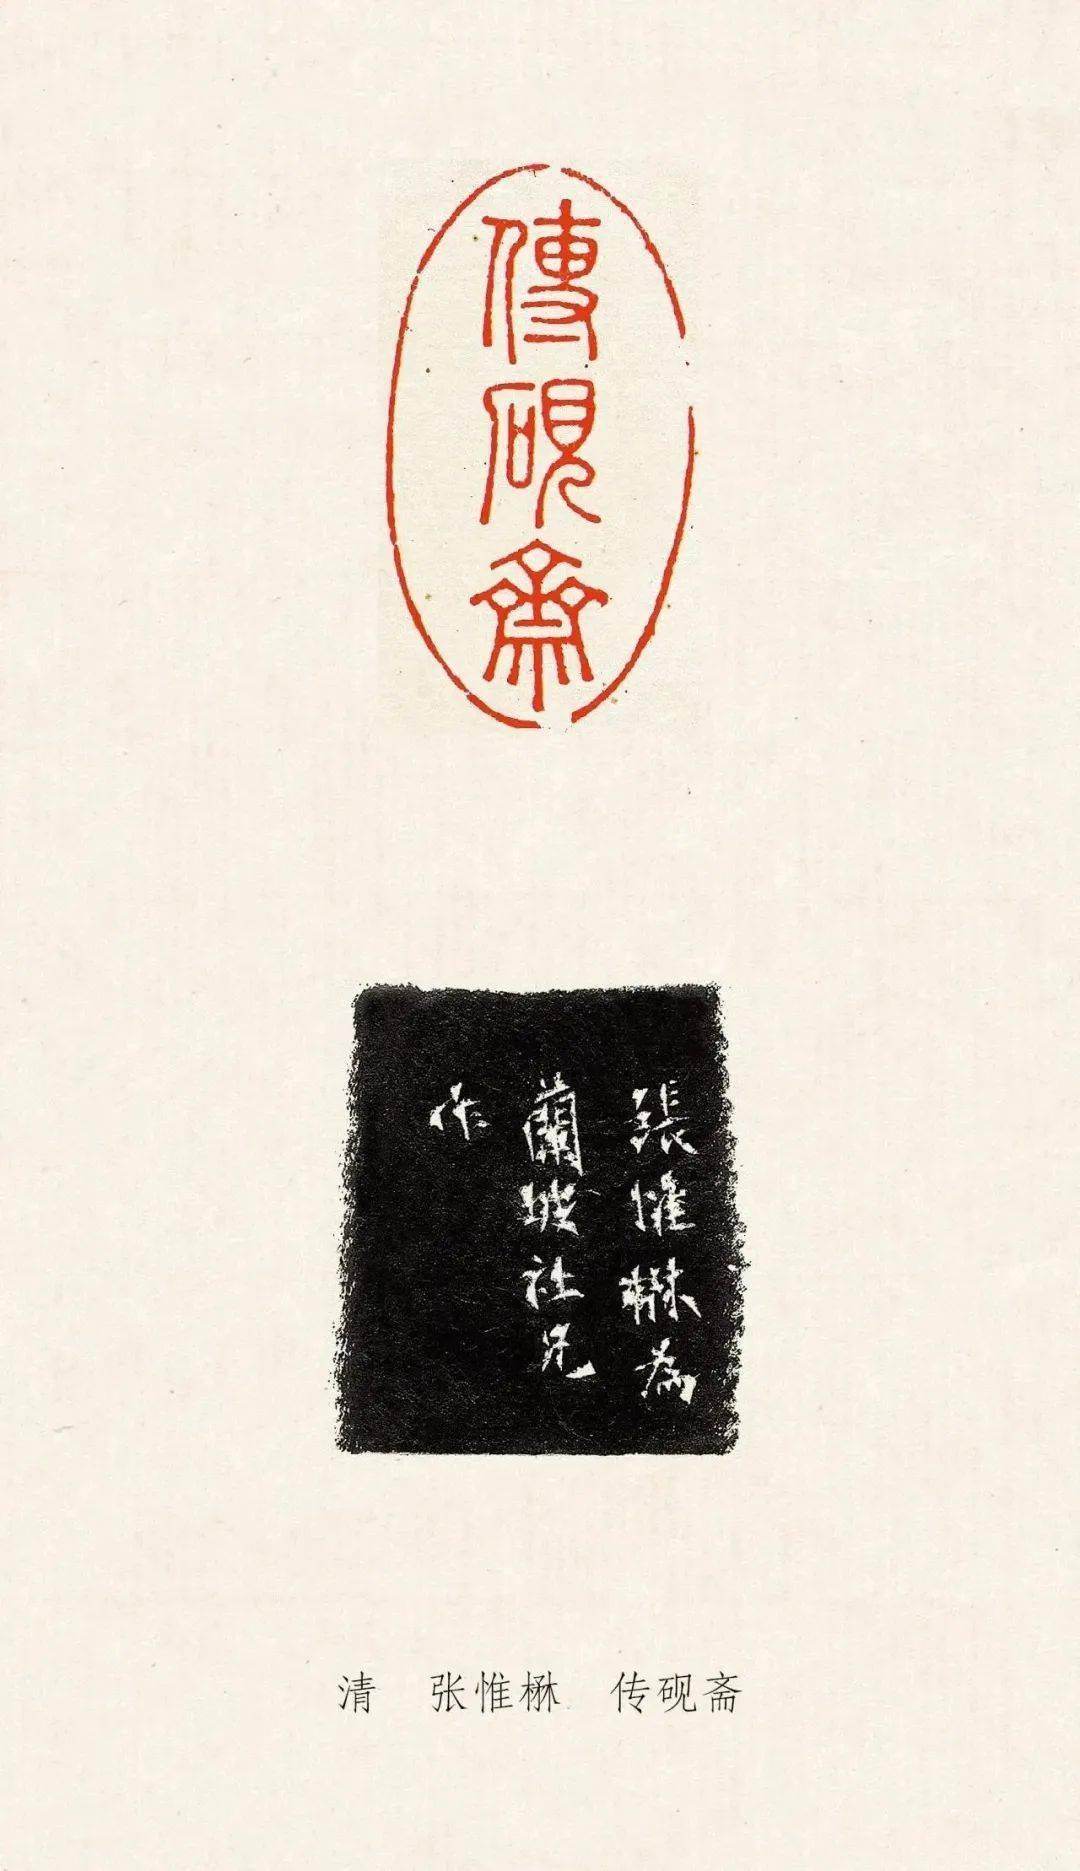 傳硯齋
張惟楙為
蘭坡社兄
作
清　张惟楙　传砚斋